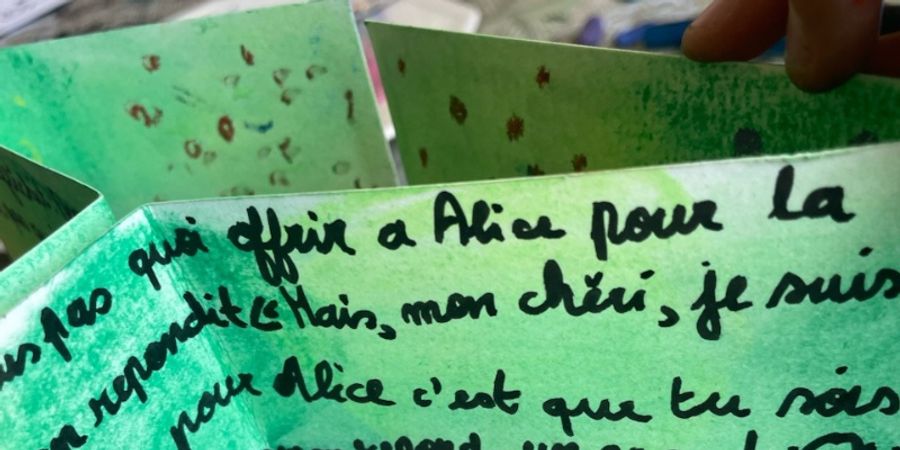 pas quoi offrir a Alice pour la
repondit « Mais, mon chĕri, je suis
pour Alice c'est que tu sois